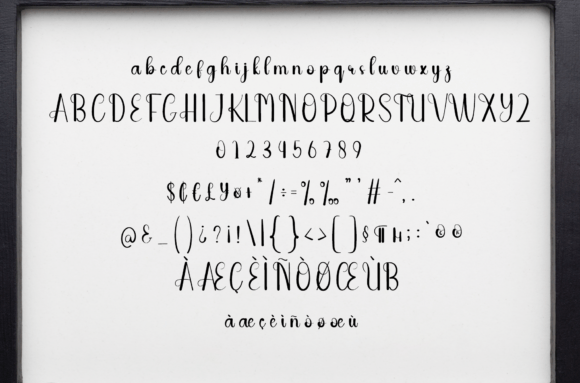 abcdefghijklmnopqrsluvwxyz
ABCDEFGHIJKLMNOPQRSTUVWXYZ
0123456789
$¢€£¥¤+*/÷=%‰"'#-^,.
@&_()¿?¡!\|{}<>[]§¶µ;:`ºª
ÀÆÇÈÌÑÒØŒÙß
àæçèìñòøœù